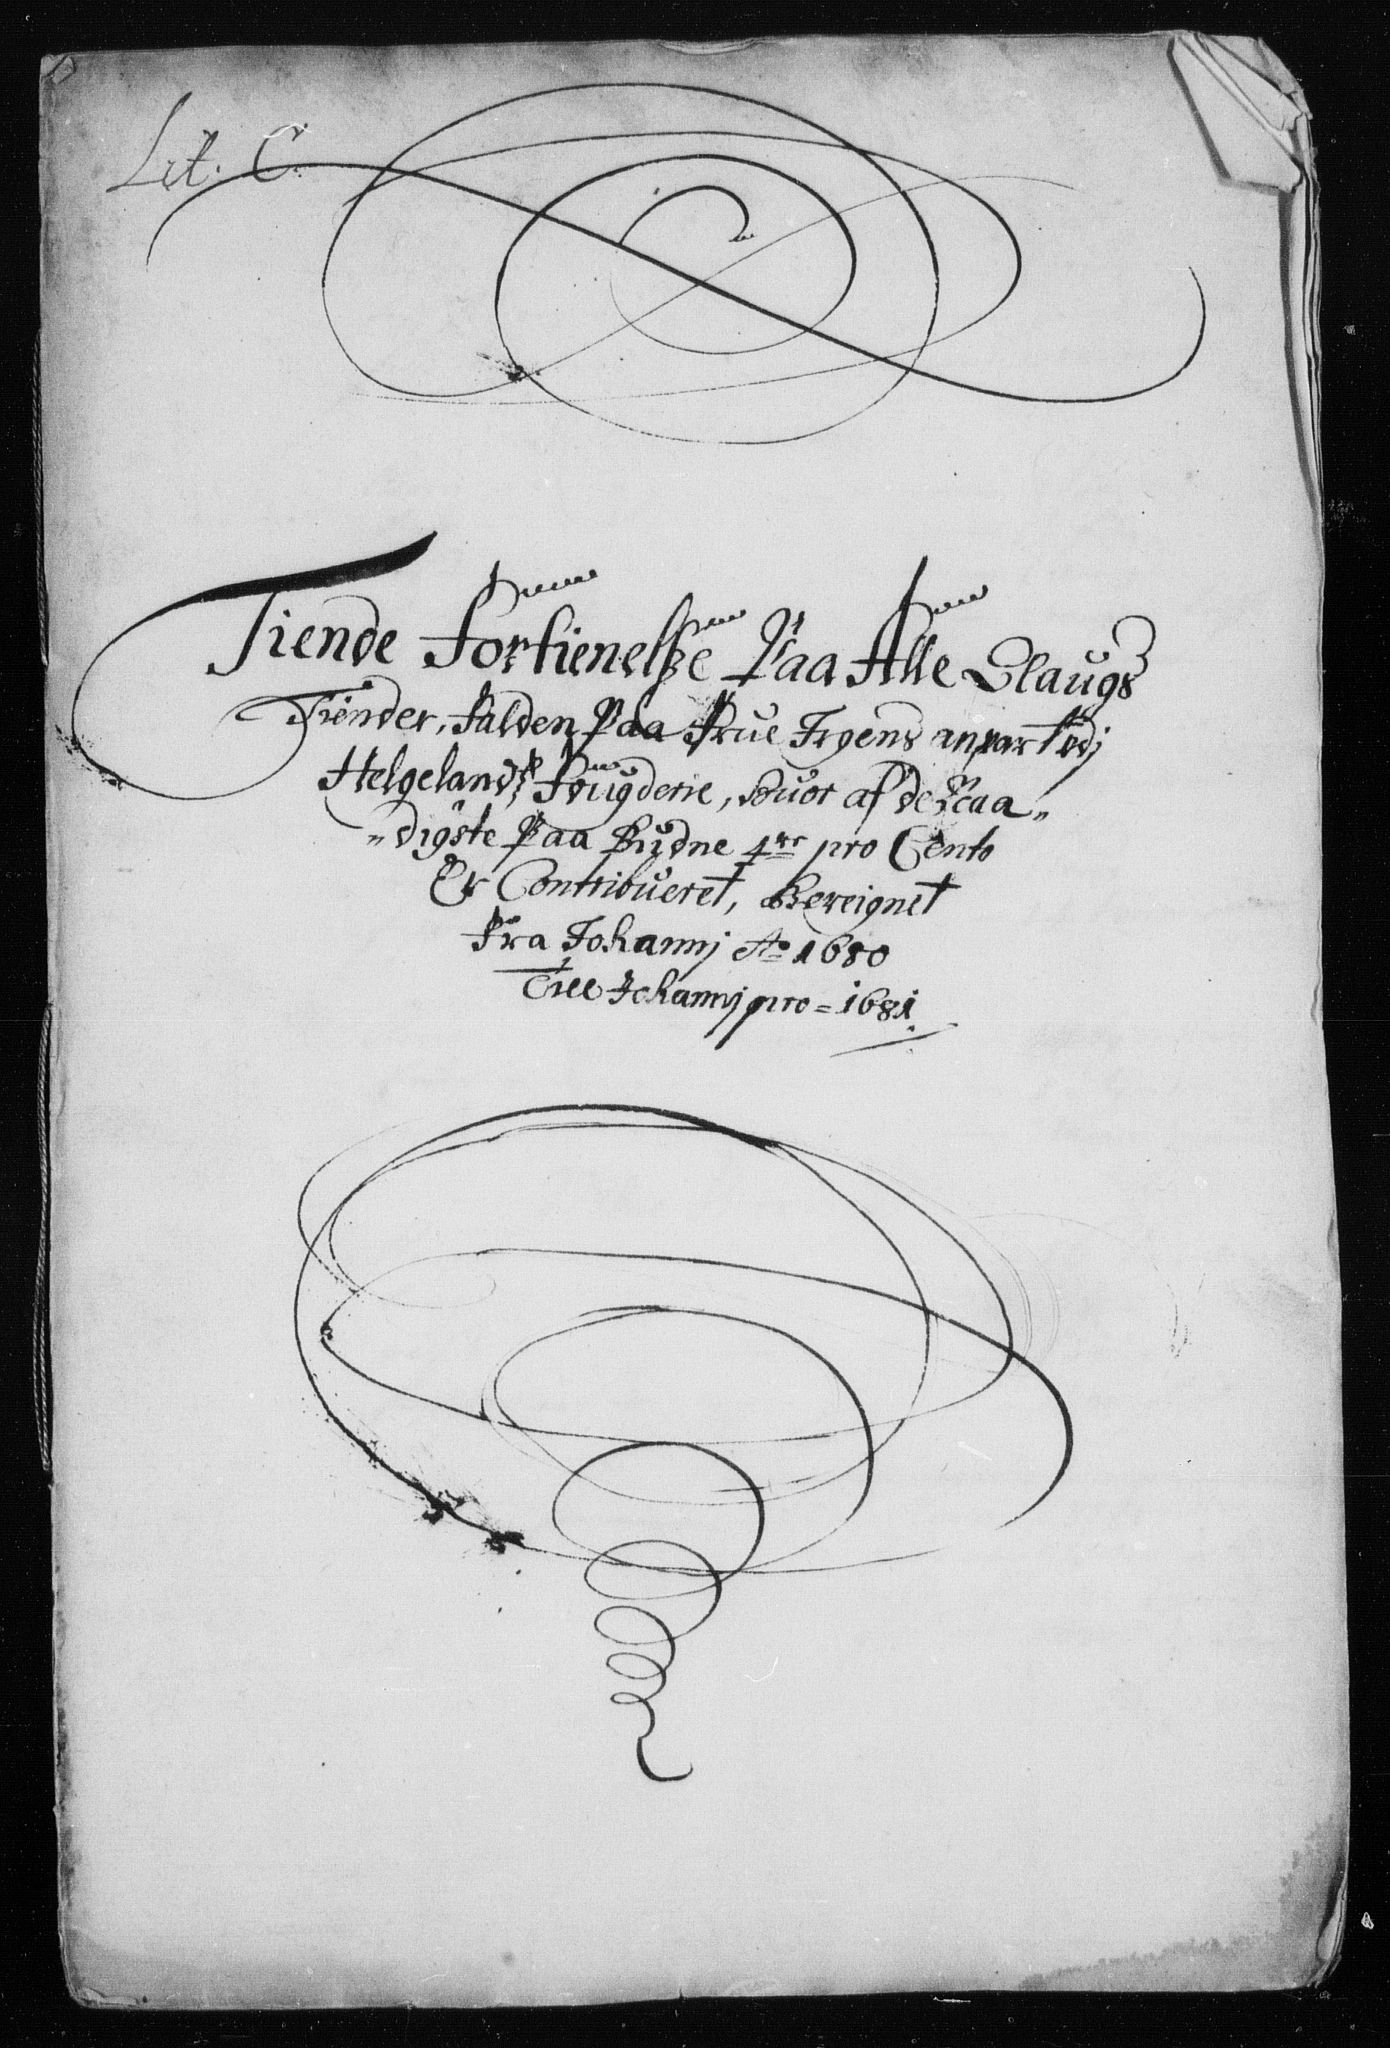 Lit. C.
Tiende Fortienelsze Paa Alle Slaugs
Tiender, Falden Paa Frue Irgens anpart udj
Helgelands Fougderie, huor af de Kaa„
„digste Paa Bydne 4 pro Cento
Er Contribueret, Bereignet
Fra Johannj Ao 1680
Till Johannj pro = 1681.